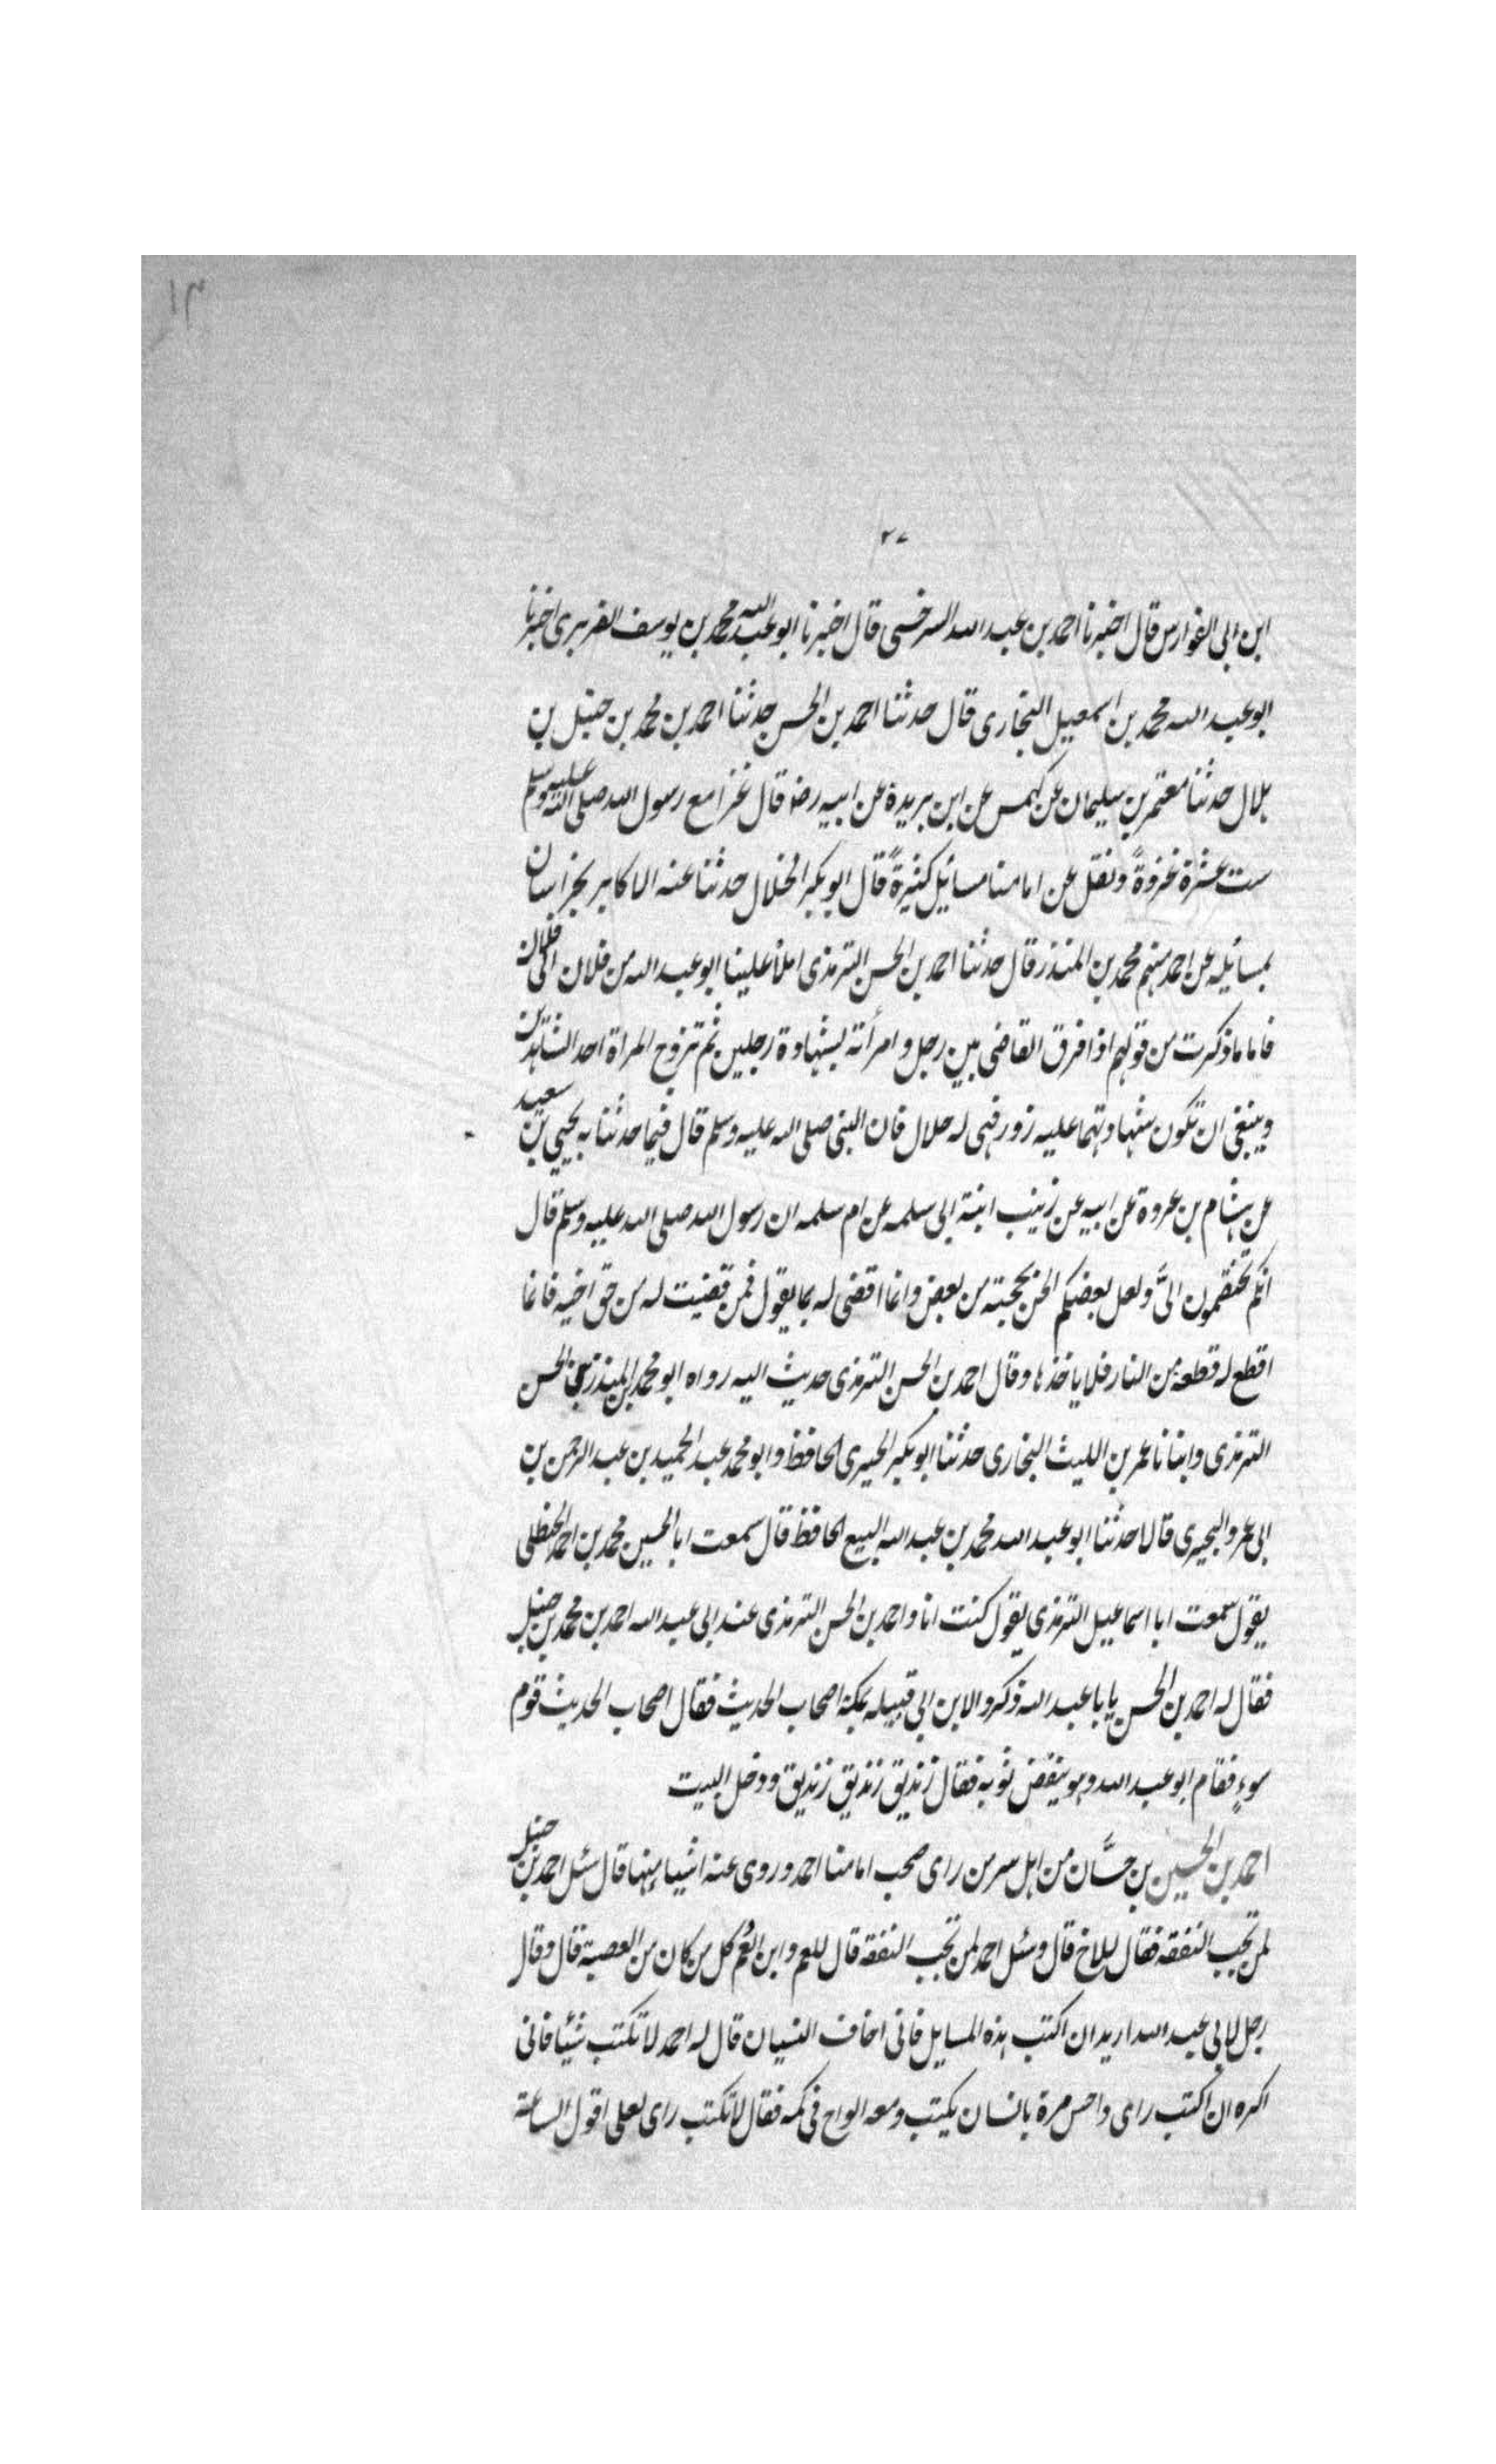 ١٣
٢٧
ابن ابى الفوارس قال اخبرنا احمد بن عبد الله السرخسى قال اخبرنا ابو عبد الله محمد بن يوسف الفربرى اخبرنا
ابو عبد الله محمد بن اسمعيل البخارى قال حدثنا احمد بن الحسن حدثنا احمد بن محمد بن حنبل بن
بلال حدثنا معتمر بن سليمان عن كهمس عن ابن بريدة عن ابيه رضا قال غزا مع رسول الله صلى الله عليه وسلم
ست عشرة غزوةً ونقل عن امامنا مسائيل كثيرةً قال ابو بكر الخلال حدثنا عنه الاكابر بخراسان
بمسائيله عن احمد منهم محمد بن المنذر قال حدثنا احمد بن الحسن الترمذى املأ علينا ابو عبد الله من فلان الى فلان
فاما ما ذكرت من قولهم اذا فرق القاضى بين رجل و امرأته بشهادة رجلين ثم تزوج المراة احد الشاهدين
وينبغى ان تكون شهادتهما عليه زور فهى له حلال فان النبى صلى الله عليه وسلم قال فيما حدثنا به يحيى بن سعيد
عن هشام بن عروة عن ابيه عن زينب ابنة ابى سلمه عن ام سلمه ان رسول الله صلى الله عليه وسلم قال
انكم تختصمون الىَّ ولعل بعضكم الحن بحجته من بعض وانما اقضى له بما يقول فمن قضيت له من حق اخيه فانما
اقطع له قطعة من النار فلا ياخذها وقال احمد بن الحسن الترمذى حديث اليه رواه ابو محمد بن المنذر عن الحسن
الترمذى وانبانا عمر بن الليث البخارى حدثنا ابو بكر الحيرى الحافظ وابو محمد عبد الحميد بن عبد الرحمن بن
ابى عمرو البحيرى قالا حدثنا ابو عبد الله محمد بن عبد الله البيع الحافظ قال سمعت ابا الحسين محمد بن احمد الحنظلى
يقول سمعت ابا اسماعيل الترمذى يقول كنت انا واحمد بن الحسن الترمذى عند ابى عبد الله احمد بن محمد بن حنبل
فقال له احمد بن الحسن يا با عبد الله ذكروا لابن ابى قبيله بمكة اصحاب الحديث فقال اصحاب الحديث قوم
سوءٍ فقام ابو عبد الله وهو ينفض ثوبه فقال زنديق زنديق زنديق ودخل البيت
احمد بن الحسين بن حسَّان من اهل سر من راى صحب امامنا احمد وروى عنه اشيا منها قال سئل احمد بن حنبل
لمن تجب النفقه فقال للاخ قال وسئل احمد لمن تجب النفقة قال للعم و ابن العم كل من كان من العصبة قال وقال
رجل لابى عبد الله اريد ان اكتب هذه المسايل فانى اخاف النسيان قال له احمد لا تكتب شيئا فانى
اكره ان اكتب راى واحس مرة بانسان يكتب ومعه الواح فى كمه فقال لا تكتب راى لعلى اقول الساعة